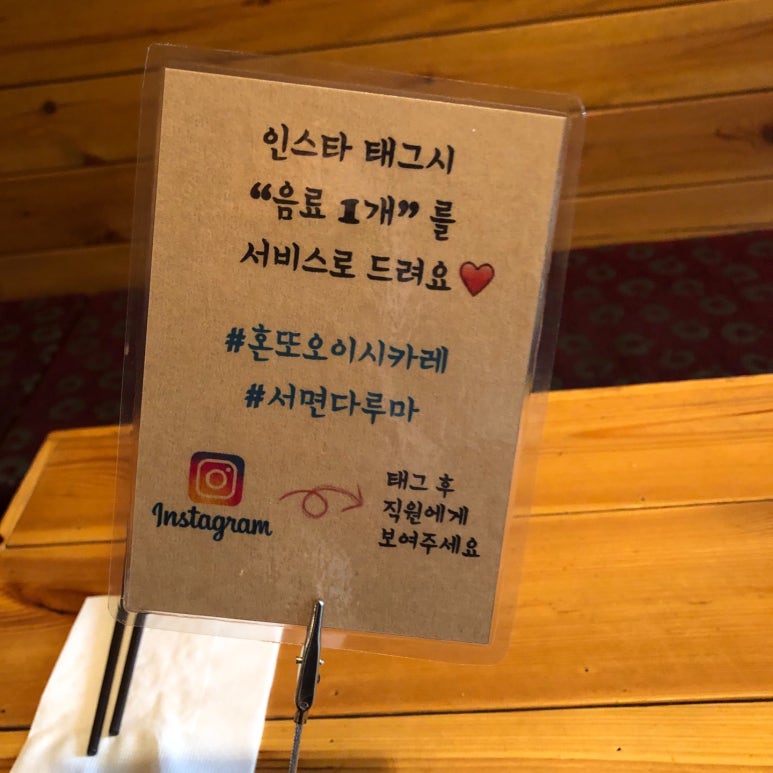 인스타 태그시
“음료 1개” 를
서비스로 드려요❤️
#혼또오이시카레
#서면다루마
Instagram
태그 후
직원에게
보여주세요